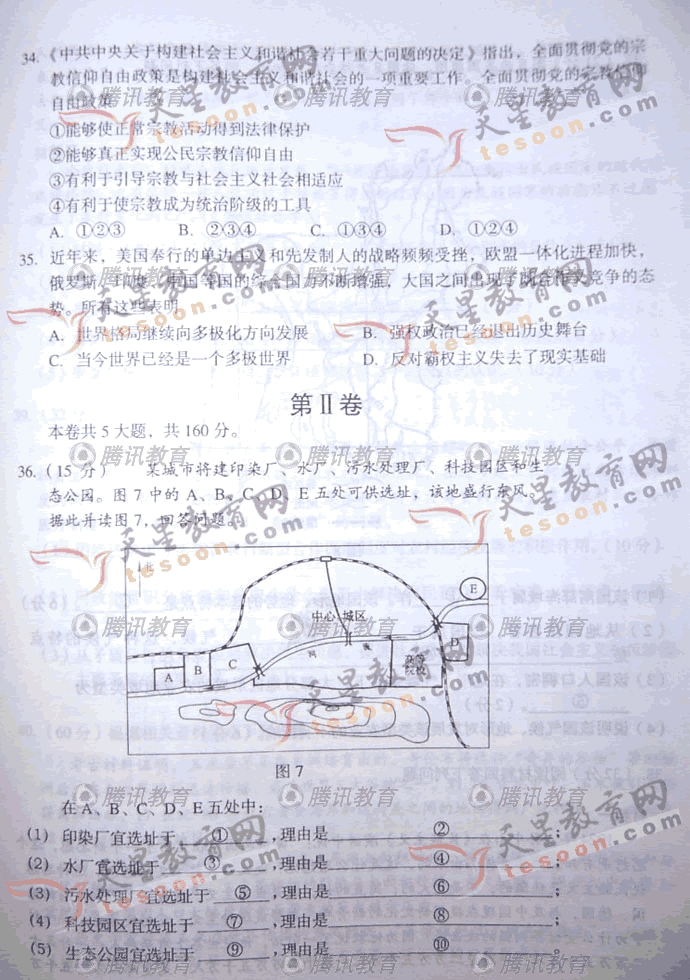 34.《中共中央关于构建社会主义和谐社会若干重大问题的决定》指出，全面贯彻党的宗
教信仰自由政策是构建社会主义和谐社会的一项重要工作。全面贯彻党的宗教信仰
自由政策
①能够使正常宗教活动得到法律保护
②能够真正实现公民宗教信仰自由
③有利于引导宗教与社会主义社会相适应
④有利于使宗教成为统治阶级的工具
A. ①②③ B. ②③④ C. ①③④ D. ①②④
35. 近年来，美国奉行的单边主义和先发制人的战略频频受挫，欧盟一体化进程加快，
俄罗斯、印度、中国等国的综合国力不断增强，大国之间出现了既合作又竞争的态
势。所有这些表明
A. 世界格局继续向多极化方向发展 B. 强权政治已经退出历史舞台
C. 当今世界已经是一个多极世界 D. 反对霸权主义失去了现实基础
第Ⅱ卷
本卷共5大题，共160分。
36.（15分） 某城市将建印染厂、水厂、污水处理厂、科技园区和生
态公园。图7中的A、B、C、D、E五处可供选址，该地盛行东风。
据此并读图7，回答问题。
北
E
中心城区
D
A B C
图7
在A、B、C、D、E五处中：
(1) 印染厂宜选址于 ① ,理由是 ② ；
(2) 水厂宜选址于 ③ ,理由是 ④ ；
(3) 污水处理厂宜选址于 ⑤ ,理由是 ⑥ ；
(4) 科技园区宜选址于 ⑦ ,理由是 ⑧ ；
(5) 生态公园宜选址于 ⑨ ,理由是 ⑩ 。
天星教育网
tesoon.com
腾讯教育